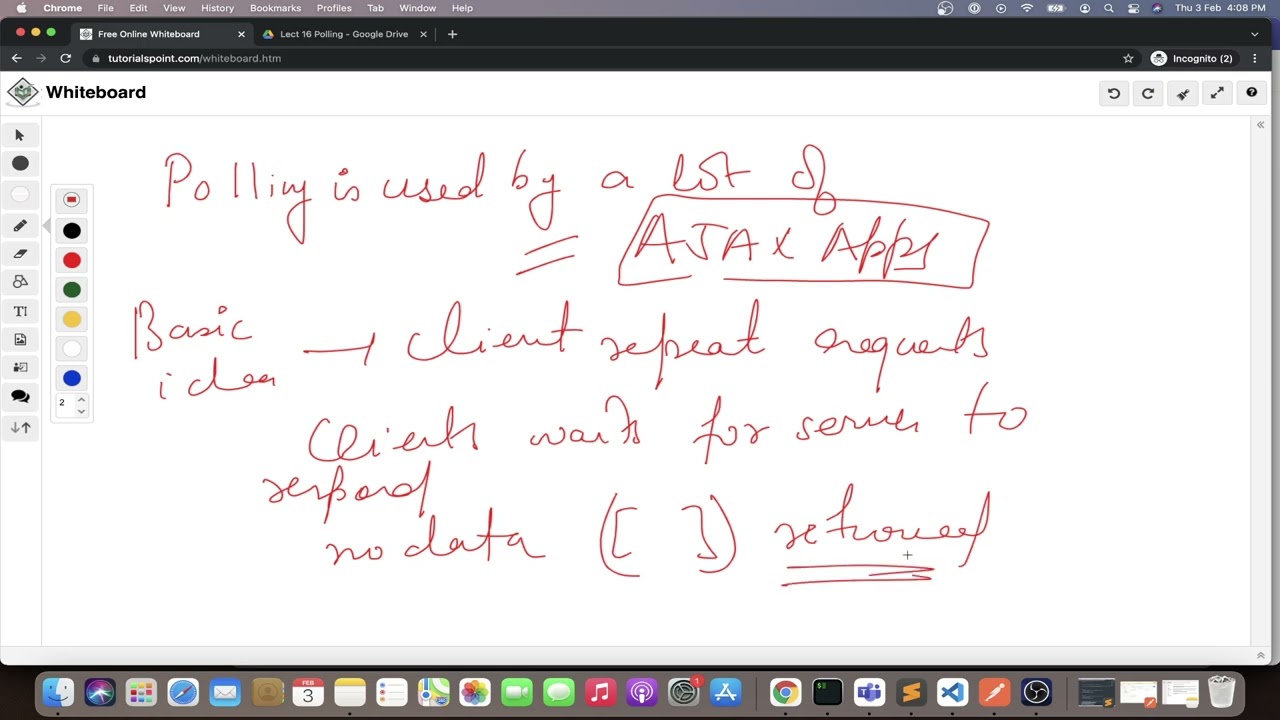 Chrome File Edit View History Bookmarks Profiles Tab Window Help Thu 3 Feb 4:08 PM
Free Online Whiteboard Lect 16 Polling - Google Drive
tutorialspoint.com/whiteboard.htm Incognito (2)
Whiteboard
Polling is used by a lot of
AJAX Apps
Basic idea → Client repeat requests
Clients waits for server to
respond
no data ([ ]) returned
TI
2
FEB
3
1